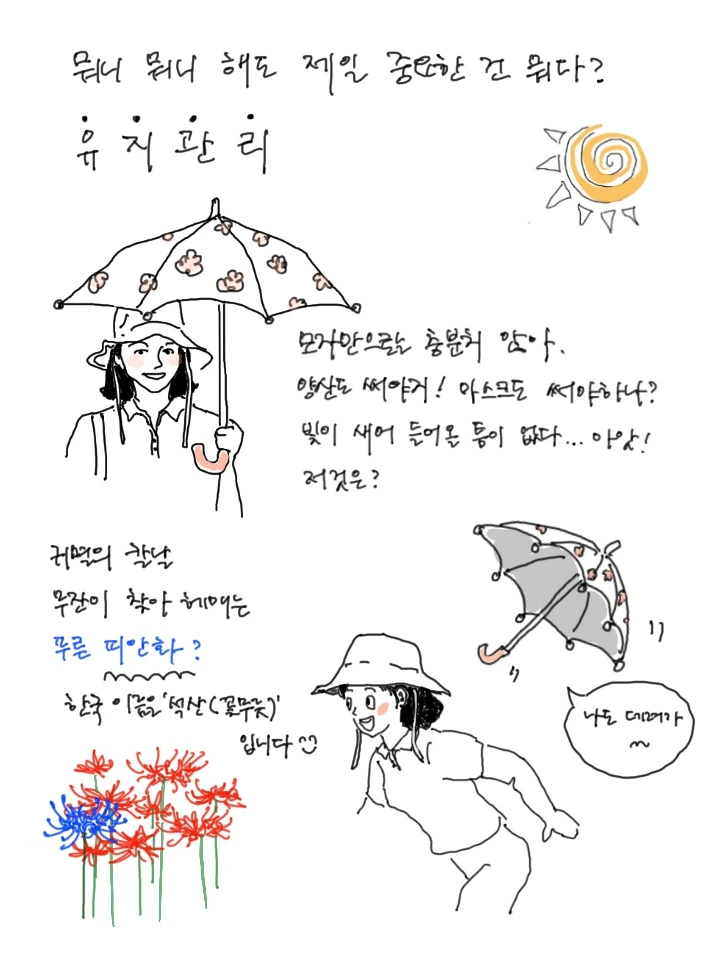 뭐니 뭐니 해도 제일 중요한 건 뭐다?
유지관리
모자만으로는 충분치 않아.
양산도 써야지! 마스크도 써야하나?
빛이 새어 들어올 틈이 없다... 아앗!
저것은?
귀멸의 칼날
무잔이 찾아 헤매는
푸른 피안화?
한국 이름은 '석산(꽃무릇)'
입니다
나도 데려가